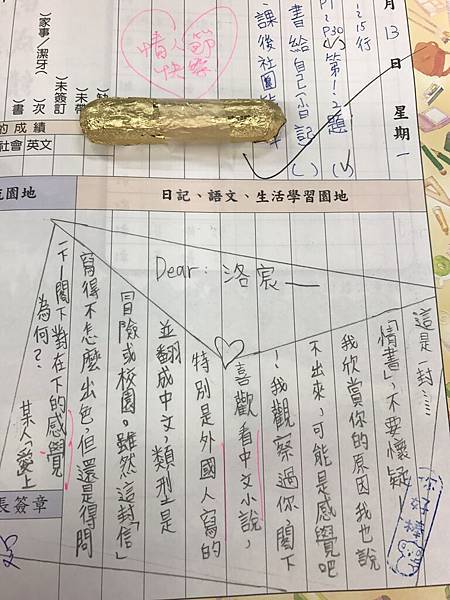 月13日 星期一
1~15行
P30(V)第1、2題
書給自己
課後社團
情人節
快樂
家事/潔牙
未簽訂
書 次
的成績
社會 英文
園地
日記、語文、生活學習園地
Dear：洛宸
這是一封……
「情書」，不要懷疑
我欣賞你的原因我也說
不出來，可能是感覺吧
！我觀察過你閣下
喜歡看中文小說，
特別是外國人寫的
並翻成中文，類型是
冒險或校園。雖然這封「信」
寫得不怎麼出色，但還是得問
一下—閣下對在下的感覺
為何？
某人「愛上
長簽章